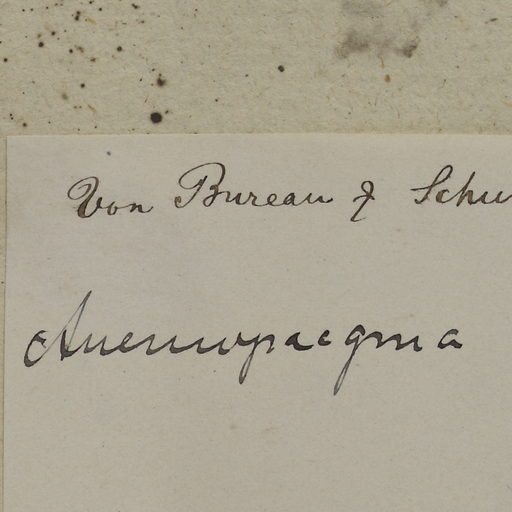 Von Bureau & Schu
Anemopaegma